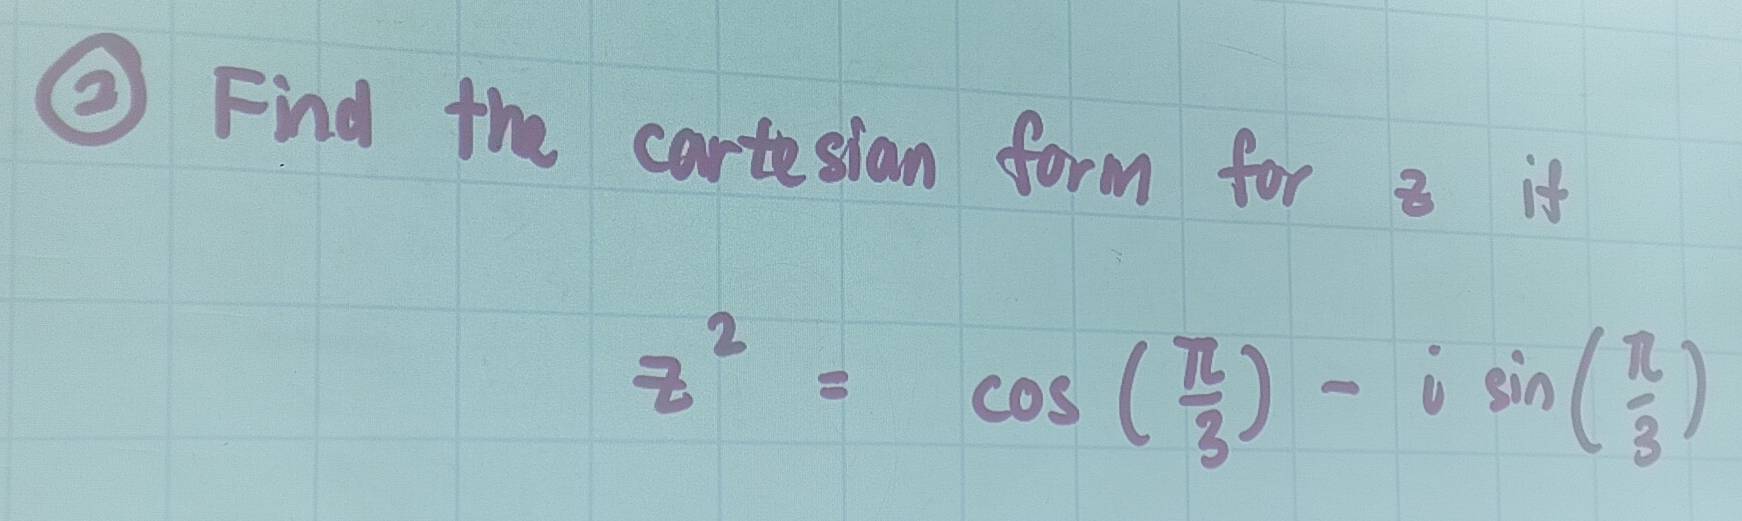 ② Find the cartesian form for z if
z² = cos (π/3) - i sin (π/3)